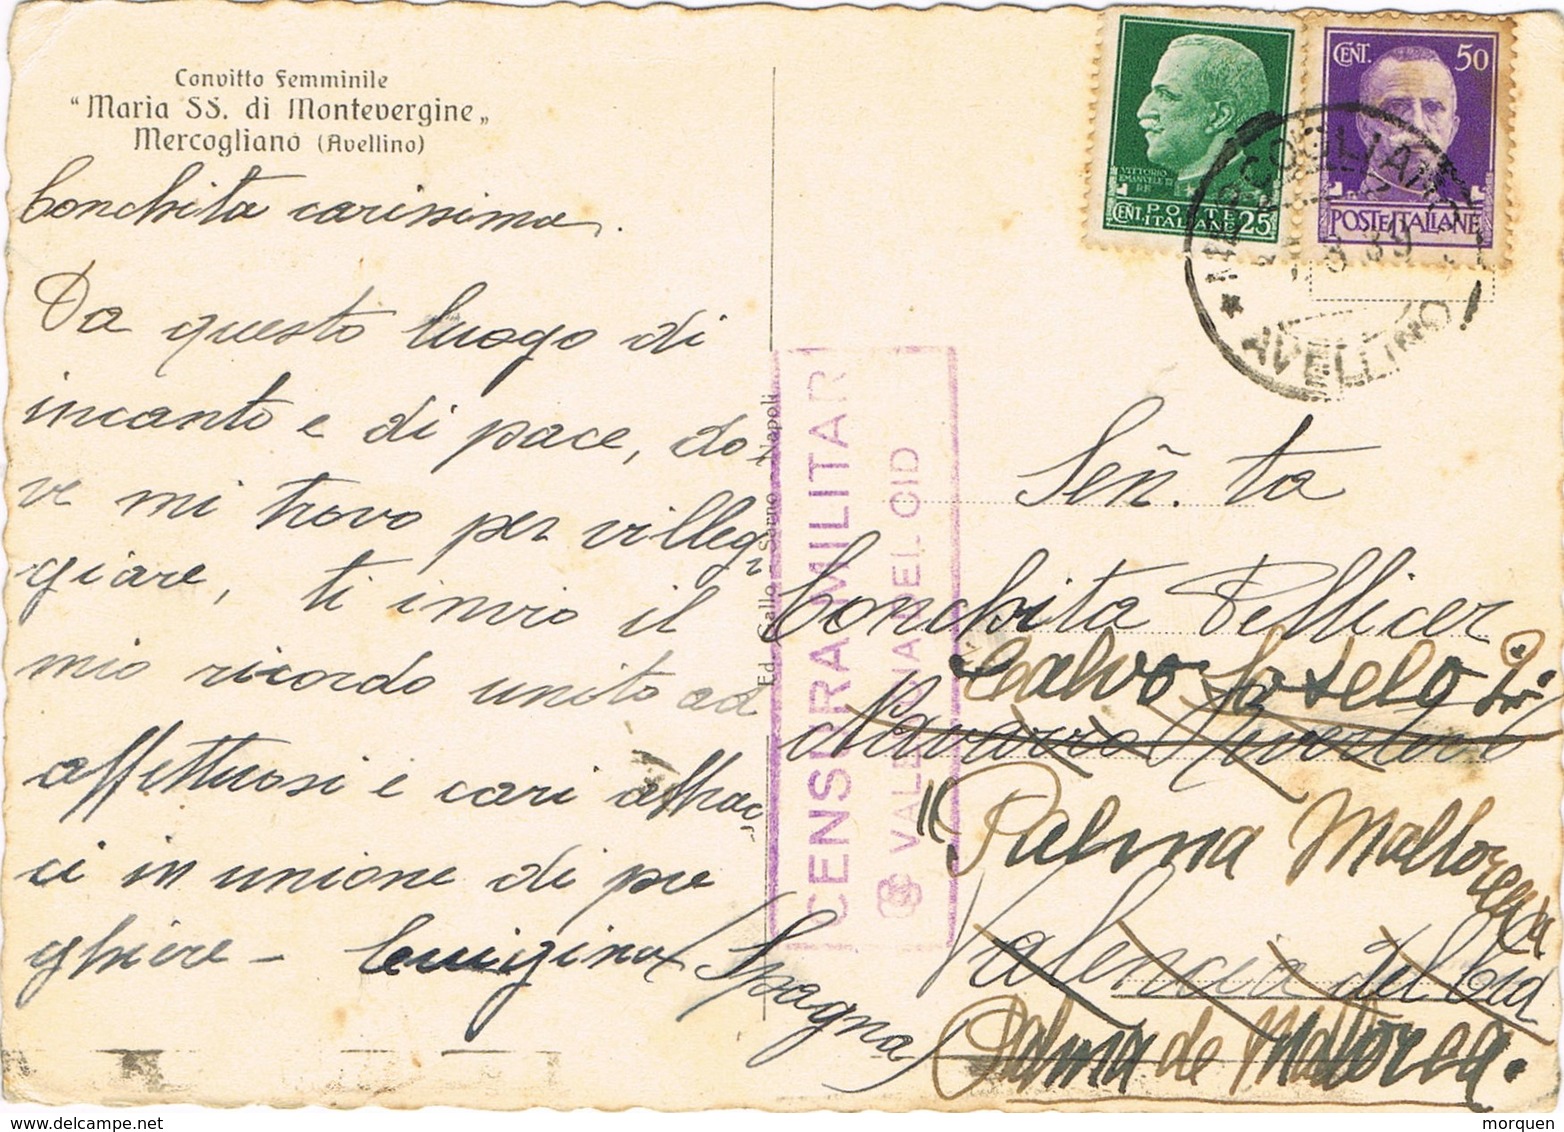 Convitto Femminile
"Maria SS. di Montevergine„
Mercogliano (Avellino)
Conchita carissima.
Da questo luogo di
incanto e di pace, do
ve mi trovo per villeg
giare, ti invio il
mio ricordo unito ad
affettuosi e cari abbrac
ci in unione di pre
ghiere - Luigina
(Spagna)
Ed. Gallo - Sarno - Napoli
CENSURA MILITAR
VALENCIA DEL CID
VITTORIO
EMANUELE III
RE
POSTE
CENT. ITALIANE 25
CENT. 50
POSTE ITALIANE
MERCOGLIANO
8 39
* AVELLINO
Señ. ta
Conchita Pellicer
Calvo Sotelo
Navarro
Palma Mallorca
Valencia del Cid
Palma de Mallorca.
morquen